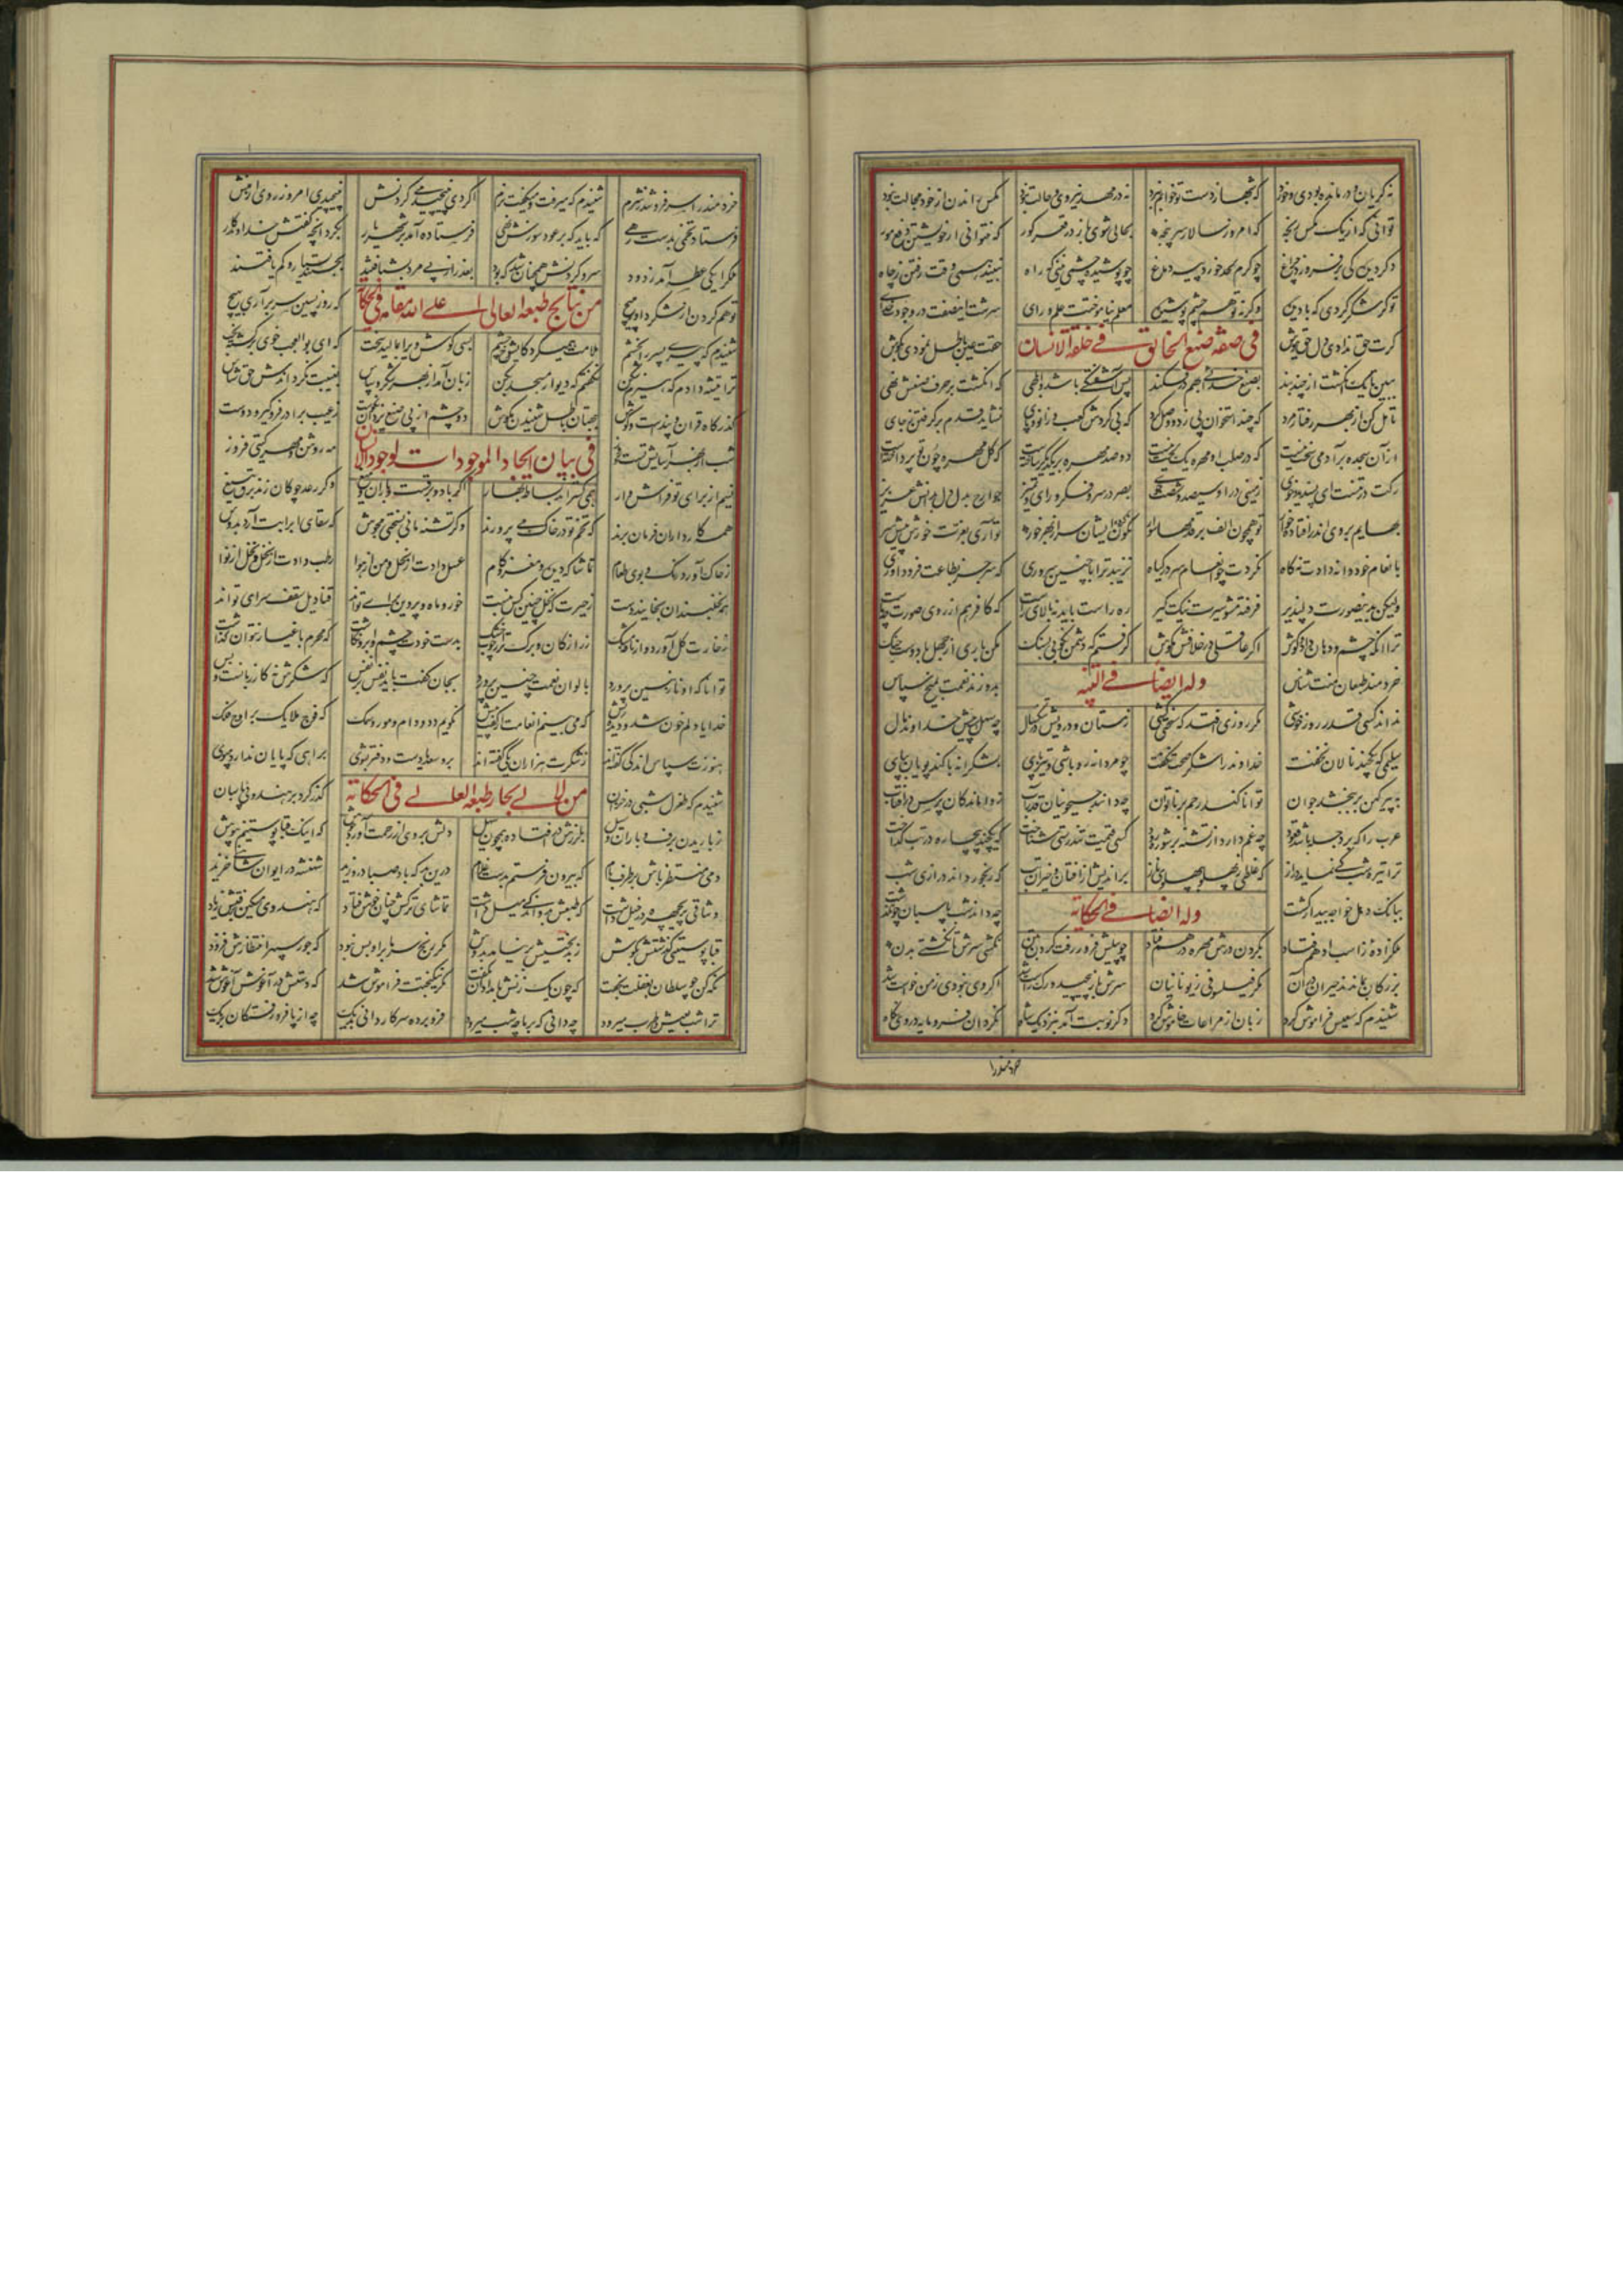 نه گریان و درمانده بودی و خرد که شبها ز دست تو خوابم نبرد نه در مهد نیروی حالت نبود مگس راندن از خود مجالت نبود
توانی که از یک مگس رنجه که امروز سالار سرپنجه بحالی شوی باز در قعر گور که نتوانی از خویشتن دفع مور
دگر دیده کی برفروزد چراغ چو کرم لحد خورد پیه دماغ چو پوشیده چشمی ببینی که راه نبیند همی وقت رفتن ز چاه
تو گر شکر کردی که با دیده وگرنه تو هم چشم پوشیده معلم نیاموختت علم و رای سرشت این صفت در وجودت خدای
گرت حق ندادی دل حق نیوش حقت عین باطل نمودی بگوش
فی صفة صنع الخالق فی خلقة الانسان
ببین تا یک انگشت از چند بند بصنع خدائی بهم درفکند پس آشفتگی باشد و ابلهی که انگشت بر حرف صنعش نهی
تامل کن از بهر رفتار مرد که چند استخوان پی زد و وصل کرد که بی گردش کعب و زانو و پای نشاید قدم برگرفتن ز جای
از آن سجده بر آدمی سخت نیست که در صلب او مهره یک لخت نیست دو صد مهره بر یکدگر ساختست که گل مهره چون تو پرداختست
رگت در تنست ای پسندیده خوی زمینی درو سیصد و شصت جوی بصر در سر و فکر و رای و تمیز جوارح بدل دل بدانش عزیز
بهایم بروی اندر افتاده خوار تو همچون الف بر قدمها سوار نگون کرده ایشان سر از بهر خور تو آری بعزت خورش پیش سر
بانعام خود دانه دادت نه کاه نکردت چو انعام سر در گیاه نزیبد ترا با چنین سروری که سر جز بطاعت فرود آوری
ولیکن بدین صورت دلپذیر فرفته مشو سیرت نیک گیر ره راست باید نه بالای راست که کافر هم از روی صورت چو ماست
ترا آنکه چشم و دهان داد و گوش اگر عاقلی در خلافش مکوش گرفتم که دشمن بکوبی بسنگ مکن باری از جهل با دوست جنگ
خردمند طبعان منت شناس بدوزند نعمت بمیخ سپاس
وله ایضا فی التنبیه
نداند کسی قدر روز خوشی مگر روزی افتد که سختی کشی زمستان درویش در تنگ سال چه سهلست پیش خداوند مال
سلیمی که یکچند نالان نخفت خداوند را شکر صحت نگفت چو مردانه رو باشی و تیزپوی بشکرانه با کندپویان بپای
به پیر کهن بر ببخشد جوان توانا کند رحم بر ناتوان چه دانند جیحونیان قدر آب ز واماندگان پرس در آفتاب
عرب را که بر دجله باشد قعود چه غم دارد از تشنه زرود کسی قیمت تندرستی شناخت که یکچند بیچاره در تب گداخت
ترا تیره شب کی نماید دراز که غلطی ز پهلو بپهلوی ناز براندیش از افتان و خیزان تب که رنجور داند درازی شب
ببانگ دهل خواجه بیدار گشت چه داند شب پاسبان چون گذشت
وله ایضا فی الحکایة
ملکزاده ز اسب ادهم فتاد بگردن درش مهره در هم فتاد چو پیلش فرو رفت گردن بتن نگشتی سرش تا نگشتی بدن
بزرگان بماندند حیران در آن مگر فیلسوفی ز یونانیان سرش باز پیچید و رگ راست شد اگر وی نبودی ز من خواست شد
شنیدم که سعیش فراموش کرد زبان از مراعات خاموش کرد دگر نوبت آمد بنزدیک شاه نکرد آن فرومایه در وی نگاه
خردمند را
خردمند را سر فرو شد بشرم شنیدم که میرفت و میگفت نرم اگر دی نپیچیدمی گردنش نپیچیدی امروز روی از منش
فرستاد تخمی بدست رهی که باید که بر عود سوزش نهی فرستاده آمد بر شهریار بکرد آنچه گفتش خداوندگار
ملک را یکی عطسه آمد ز دود سر و گردنش همچنان شد که بود بعذر از پی مرد بشتافتند بجستند بسیار و کم یافتند
تو هم گردن از شکر داور مپیچ که روز پسین سر برآری بهیچ
من نتایج طبعه العالی اعلی الله مقامه فی الحکایة
شنیدم که پیری پسر را بخشم ملامت همیکرد کای شوخ چشم یکی گوش ویرا بمالید سخت که ای بوالعجب خوی برگشته بخت
ترا تیشه دادم که هیزم شکن نگفتم که دیوار مسجد بکن زبان آمد از بهر شکر و سپاس بغیبت نگرداندش حق شناس
گذرگاه قرآن و پندست گوش ببهتان باطل شنیدن مکوش دو چشم از پی صنع یزدان نکوست ز عیب برادر فرو گیر و دوست
فی بیان ایجاد الموجودات لوجود الانسان
شب از بهر آسایش تست و روز مه روشن و مهر گیتی فروز
نسیم از برای تو فراش وار همی گستراند بساط بهار اگر باد و برفست و باران و میغ وگر رعد چوگان زند برق تیغ
همه کارداران فرمان برند که تخم تو در خاک می پرورند وگر تشنه مانی بسختی مجوش که سقای ابر آبت آرد بدوش
ز خاک آورد رنگ و بوی طعام تماشاگه دیده و مغز و کام عسل دادت از نحل و من از هوا رطب دادت از نخل و نخل از نوا
همه نخلبندان بخایند دست ز حیرت که نخلی چنین کس نبست خور و ماه و پروین برای تواند قنادیل سقف سرای تواند
ز خارت گل آورد و از نافه مشک زر از کان و برگ تر از چوب خشک بدست خودت چشم و ابرو نگاشت که محرم باغیار نتوان گذاشت
توانا که او نازنین پرورد بالوان نعمت چنین پرورد بجان گفت باید نفس بر نفس که شکرش نه کار زبانست و بس
خدایا دلم خون شد و دیده ریش که می بینم انعامت از گفت بیش نگویم دد و دام و مور و سمک که فوج ملایک بر اوج فلک
هنوزت سپاس اندکی گفته اند ز شکرت هزاران یکی گفته اند برو سعدیا دست و دفتر بشوی براهی که پایان ندارد مپوی
من لآلی بحار طبعه العالی فی الحکایة
شنیدم که طغرل شبی در خزان گذر کرد بر هندوی پاسبان
ز باریدن برف و باران و سیل بلرزش در افتاده همچون سهیل دلش بر وی از رحمت آورد جوش که اینک قبا پوستینم بپوش
دمی منتظر باش بر طرف بام که بیرون فرستم بدست غلام درین بد که باد صبا در وزید شهنشه در ایوان شاهی خزید
وشاقی پریچهره در خیل داشت که طبعش بدو اندکی میل داشت تماشای ترکش چنان خوش فتاد که هندوی مسکین برفتش ز یاد
قبا پوستینی گذشتش بگوش ز بدبختیش بر نیامد بدوش مگر رنج سرما برو بس نبود که جور سپهر انتظارش فزود
نگه کن چو سلطان بغفلت بخفت که چوبک زنش بامدادان چه گفت مگر نیکبختت فراموش شد که دستش در آغوش آغوش شد
ترا شب بعیش و طرب میرود چه دانی که بر ما چه شب میرود فرو برده سر کاروانی بدیگ چه از پا فرو رفتگان بریگ